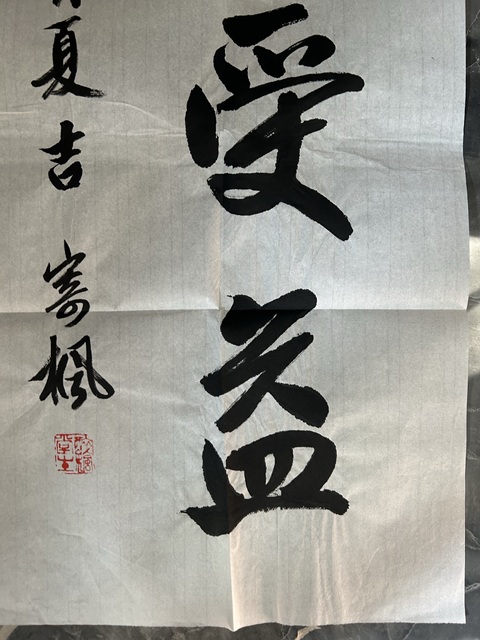 受益
夏吉 寄楓